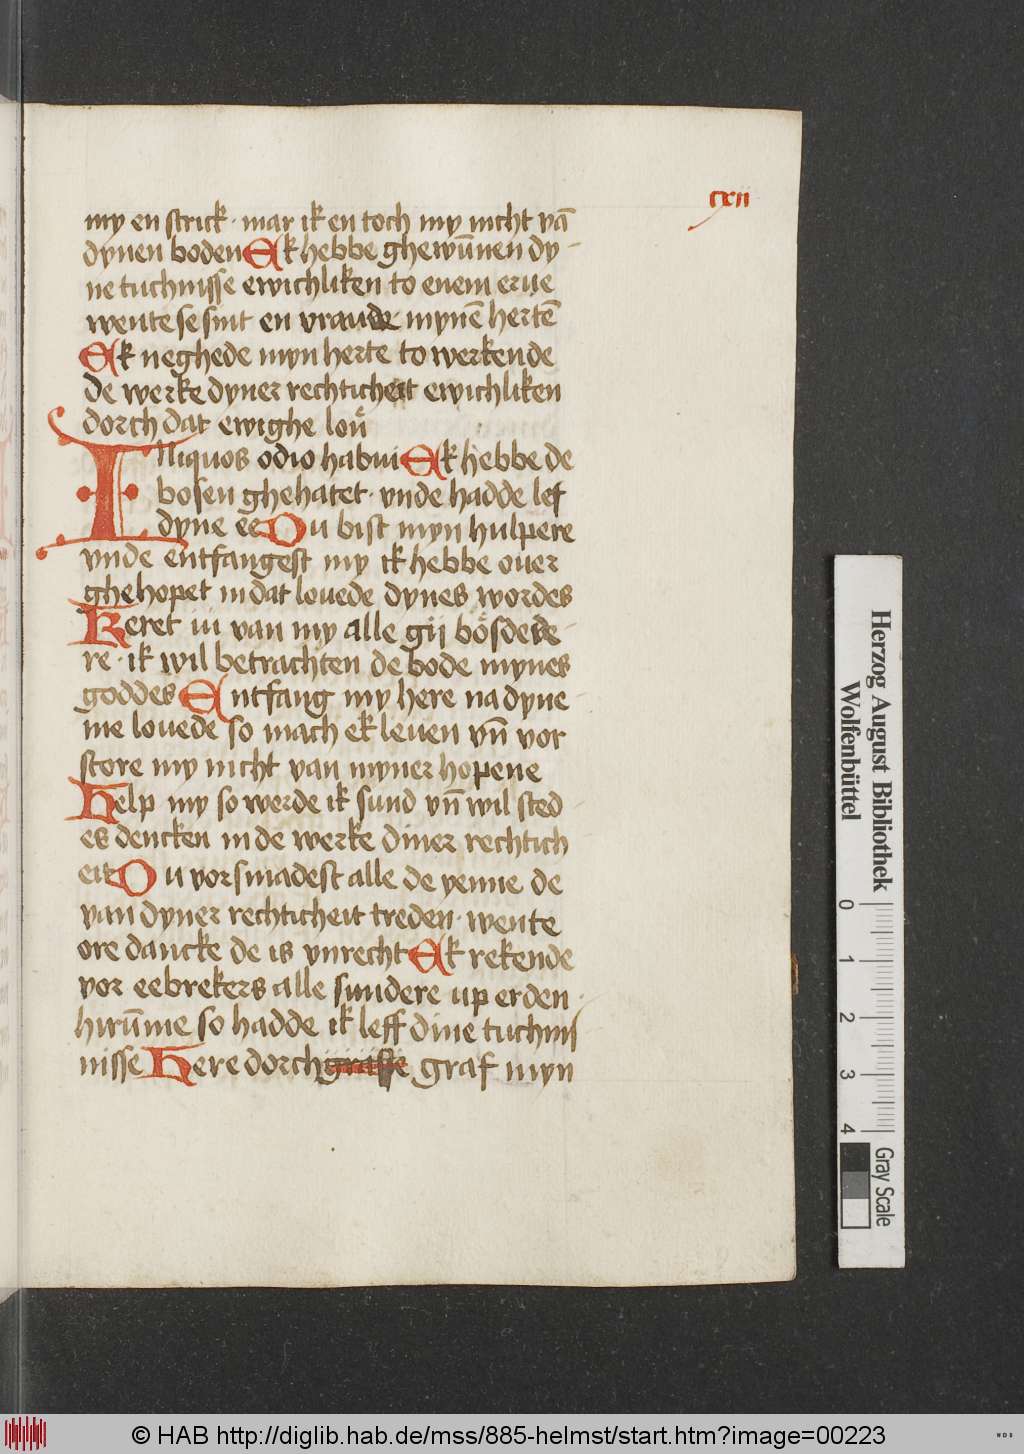 cxii
my en strick · mar ik en toch my nicht vā
dynen boden Ek hebbe ghewūnen dy-
ne tuchnisse ewichliken to enem erue
wente se sint en vraude mynē hertē
Ek neghede myn herte to werkende
de werke dyner rechticheit ewichliken
dorch dat ewighe lon
Iniquos odio habui Ek hebbe de
bosen ghehatet · vnde hadde lef
dyne ee Du bist myn hulpere
vnde entfangest my ik hebbe ouer
ghehopet in dat louede dynes wordes
Keret iu van my alle gij bösdede-
re · ik wil betrachten de bode mynes
goddes Entfang my here na dyne
me louede so mach ek leuen vn̄ vor
store my nicht van myner hopene
Help my so werde ik sund vn̄ wil sted
es dencken in de werke diner rechtich
eit Du vorsmadest alle de yenne de
van dyner rechticheit treden · wente
ore dancke de is vnrecht Ek rekende
vor eebrekers alle sundere up erden ·
hirūme so hadde ik leff dine tuchnis
nisse Here dorch graffe graf myn
Herzog August Bibliothek
Wolfenbüttel
0 1 2 3 4
Gray Scale
© HAB http://diglib.hab.de/mss/885-helmst/start.htm?image=00223
WDB